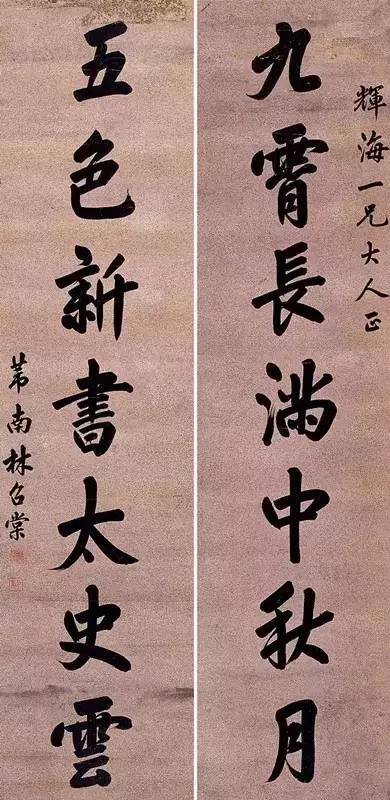 輝海一兄大人正
九霄長滿中秋月
五色新書太史雲
芾南林召棠